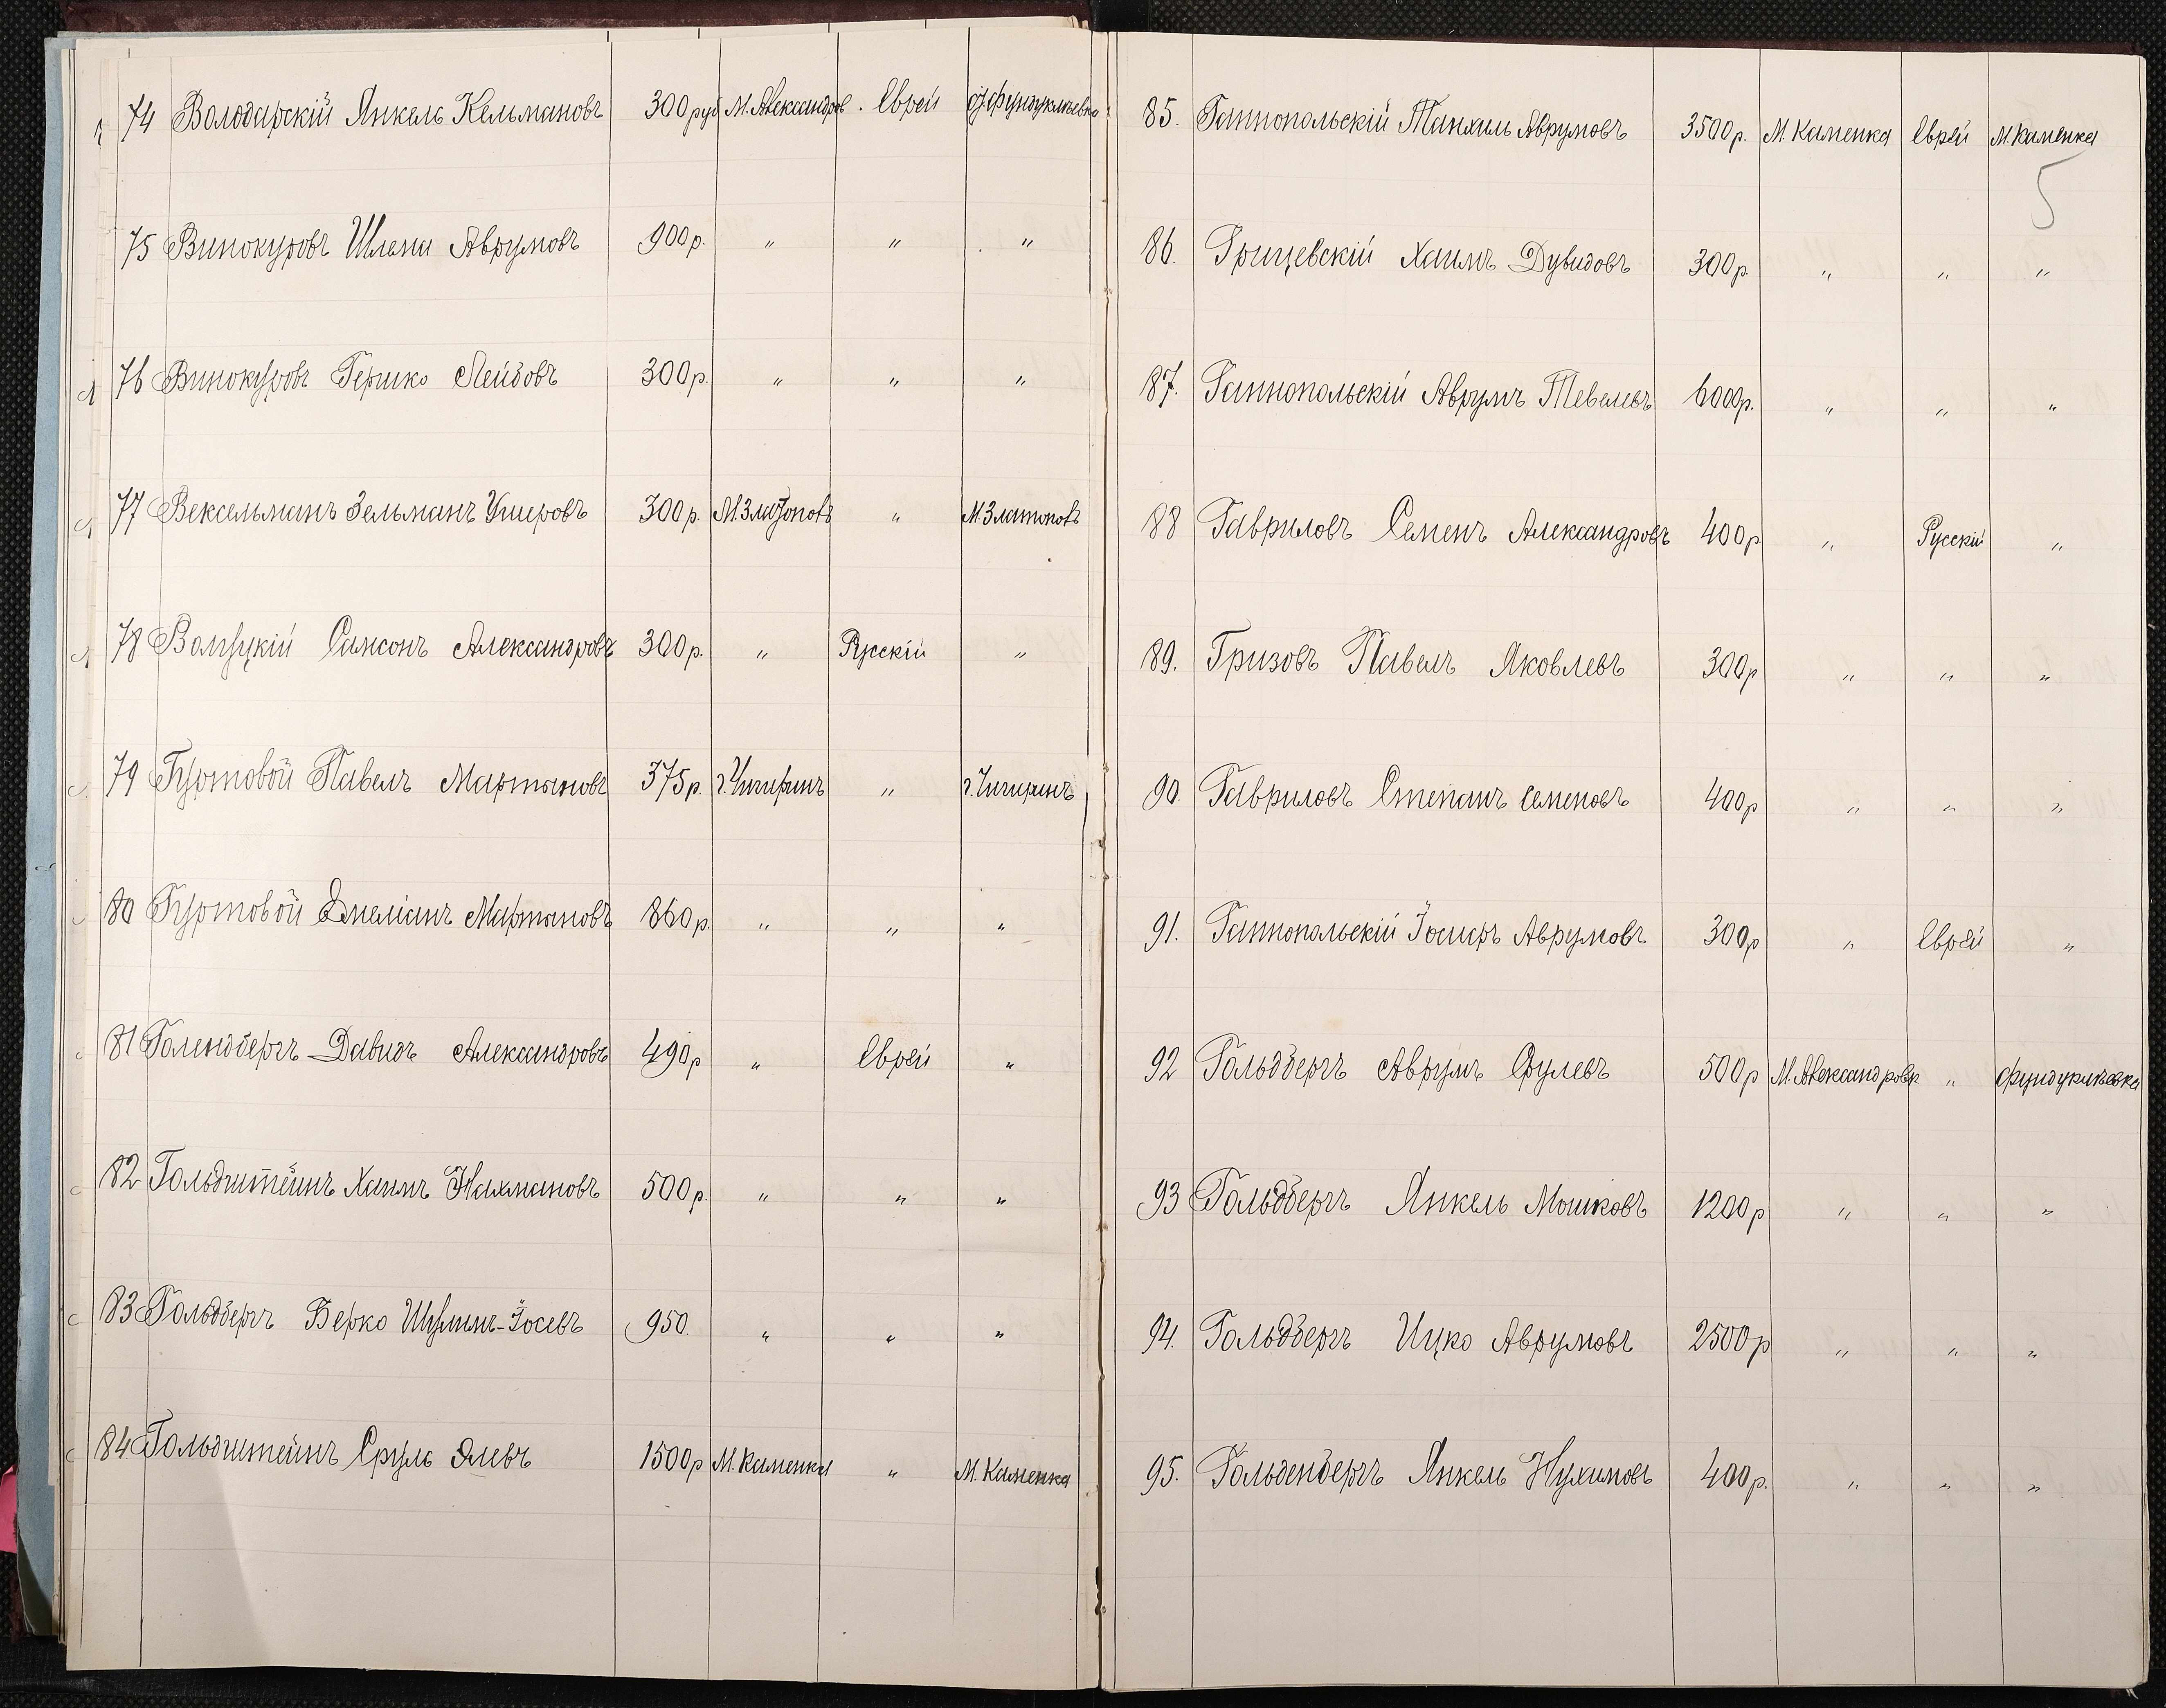 74 Володарскій Янкель Кельмановъ 300 руб М. Александров. Еврей Фундуклеевка
75 Винокуровъ Шлема Аврумовъ 900 р. " " "
76 Винокуровъ Гершко Лейбовъ 300 р. " " "
77 Вексельманъ Зельманъ Ушеровъ 300 р. М. Златополь " М. Златополь
78 Самсонъ Александровъ 300 р. " Русскій "
79 Гуртовой Павелъ Мартыновъ 375 р. г. Чигиринъ " г. Чигиринъ
80 Гуртовой Емеліанъ Мартыновъ 860 р. " " "
81 Голендбергъ Давидъ Александровъ 490 р " Еврей "
82 Гольдштейнъ Хаимъ Нахмановъ 500 р. " " "
83 Гольдбергъ Берко Шулимъ-Іосевъ 950. " " "
84 Гольдштейнъ Сруль Элевъ 1500 р М. Каменка " М. Каменка
85. Гаппопольскій Танхиль Аврумовъ 3500 р. М. Каменка Еврей М. Каменка
5
86. Грищевскій Хаимъ Дувидовъ 300 р. " " "
87. Гаппопольскій Аврумъ Тевелевъ 6000 р. " " "
88 Гавриловъ Семенъ Александровъ 400 р " Русскій "
89. Гризовъ Павелъ Яковлевъ 300 р " " "
90. Гавриловъ Степанъ Семеновъ 400 р " " "
91. Гаппопольскій Іосифъ Аврумовъ 300 р " Еврей "
92 Гольдбергъ Аврумъ Срулевъ 500 р М. Александровк " Фундуклеевка
93 Гольдбергъ Янкель Мошковъ 1200 р " " "
94. Гольдбергъ Ицко Аврумовъ 2500 р " " "
95. Гольденбергъ Янкель Нухимовъ 400 р. " " "